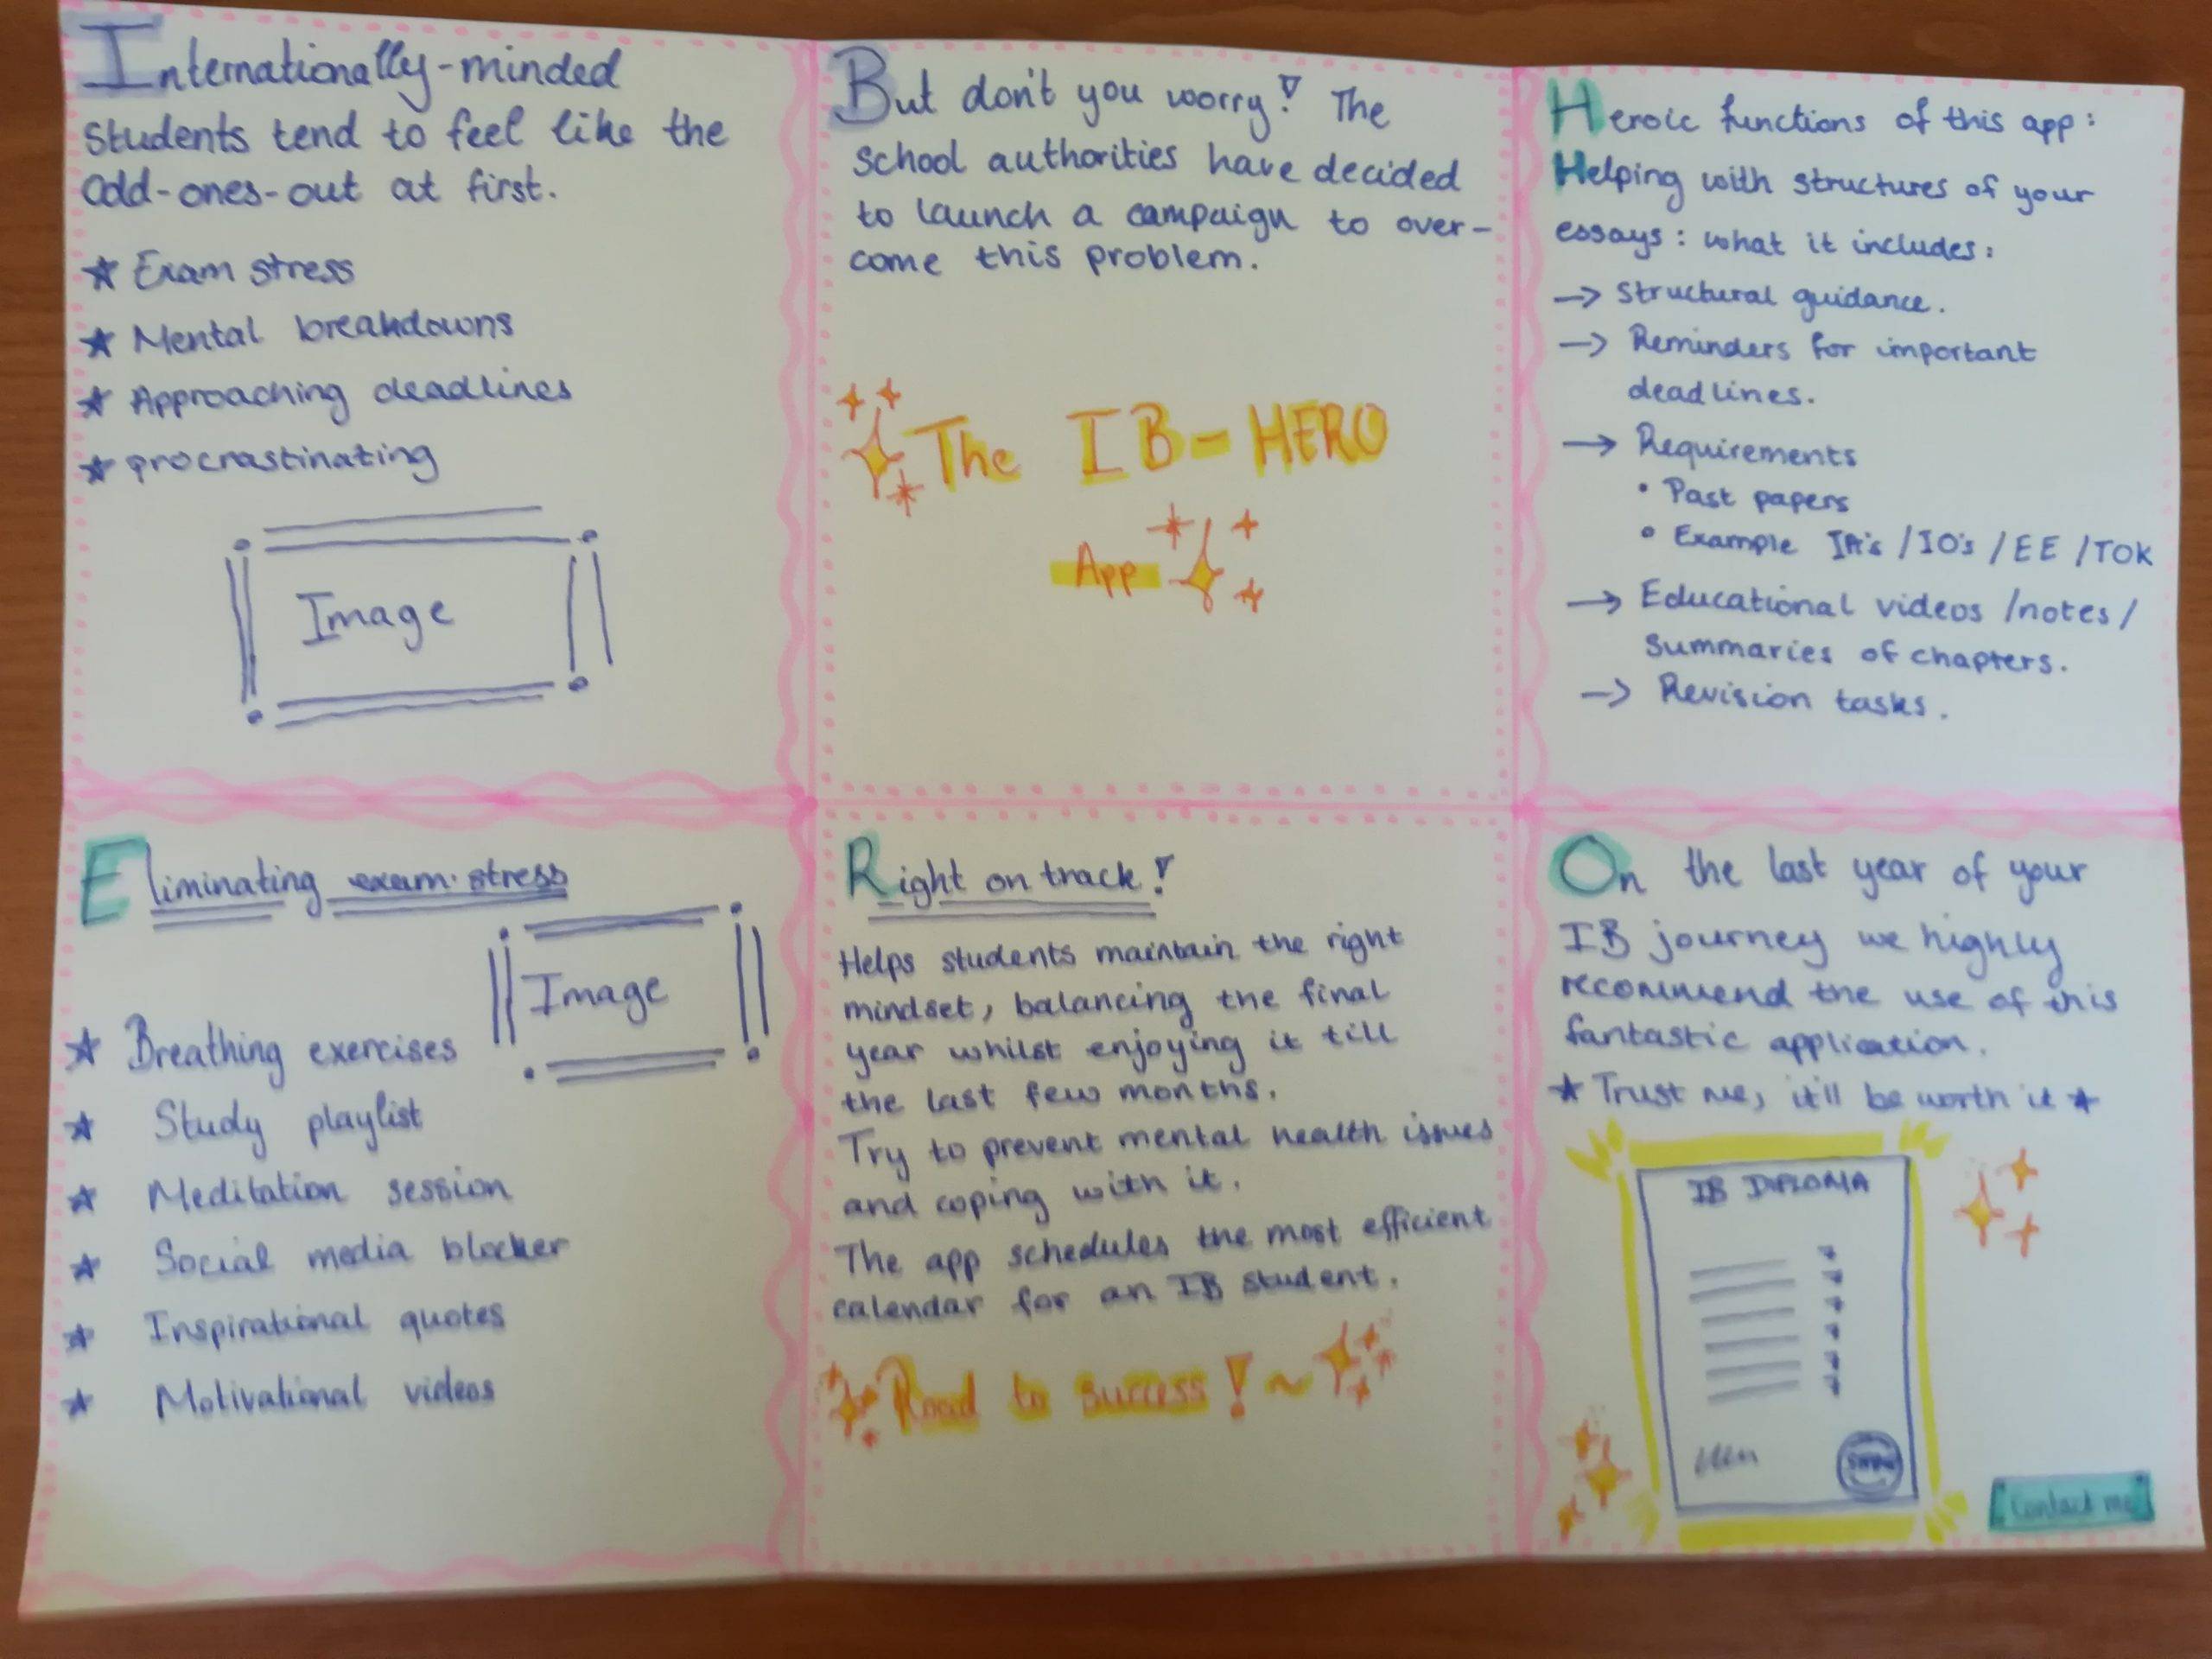 Internationally-minded
students tend to feel like the
odd-ones-out at first.
★ Exam stress
★ Mental breakdowns
★ Approaching deadlines
★ procrastinating
Image
But don't you worry! The
school authorities have decided
to launch a campaign to over-
come this problem.
The IB-HERO
App
Heroic functions of this app:
Helping with structures of your
essays: what it includes:
→ Structural guidance.
→ Reminders for important
deadlines.
→ Requirements
• Past papers
• Example IA's /IO's /EE /TOK
→ Educational videos /notes/
summaries of chapters.
→ Revision tasks.
Eliminating exam stress
Image
★ Breathing exercises
★ Study playlist
★ Meditation session
★ Social media blocker
★ Inspirational quotes
★ Motivational videos
Right on track!
Helps students maintain the right
mindset, balancing the final
year whilst enjoying it till
the last few months.
Try to prevent mental health issues
and coping with it.
The app schedules the most efficient
calendar for an IB student.
Road to success! ~
On the last year of your
IB journey we highly
recommend the use of this
fantastic application.
★ Trust me, it'll be worth it ★
IB DIPLOMA
Contact me